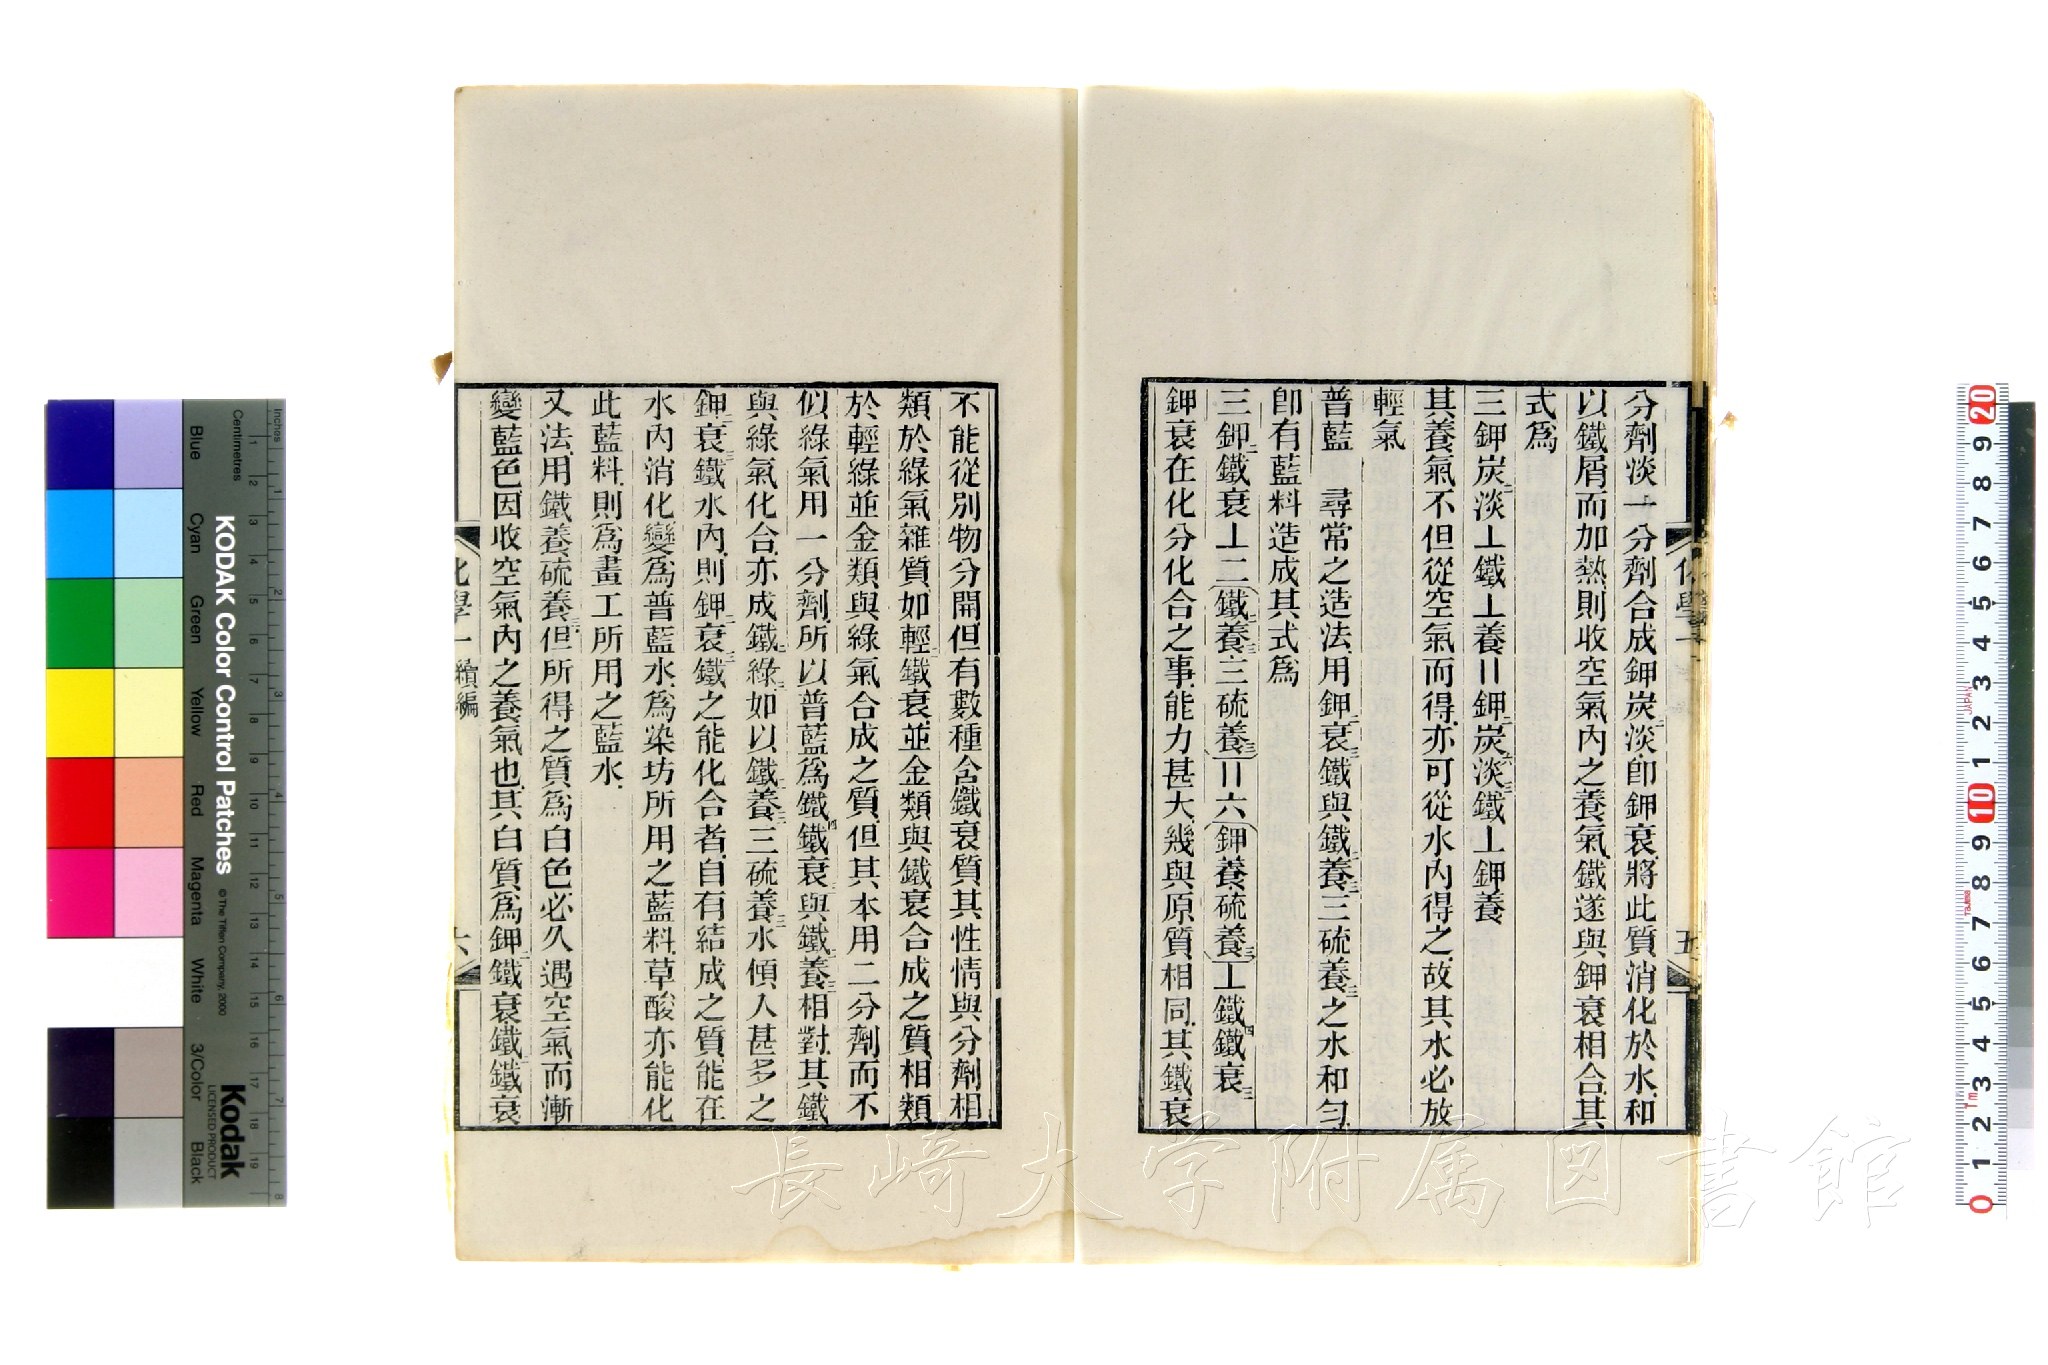 分劑淡一分劑合成鉀炭二淡即鉀衰將此質消化於水和
以鐵屑而加熱則收空氣內之養氣鐵遂與鉀衰相合其
式爲
三鉀炭二淡⊥鐵⊥養〢鉀二炭六淡三鐵⊥鉀養
其養氣不但從空氣而得亦可從水內得之故其水必放
輕氣
普藍　尋常之造法用鉀二衰三鐵與鐵二養三三硫養三之水和勻
卽有藍料造成其式爲
三鉀二鐵衰三⊥二(鐵二養三三硫養三)〢六(鉀養硫養三)⊥鐵四鐵三衰三
鉀衰在化分化合之事能力甚大幾與原質相同其鐵衰
五
不能從別物分開但有數種含鐵衰質其性情與分劑相
類於綠氣雜質如輕二鐵衰三並金類與鐵衰合成之質相類
於輕綠並金類與綠氣合成之質但其本用二分劑而不
似綠氣用一分劑所以普藍爲鐵四鐵三衰三與鐵二養三相對其鐵
與綠氣化合亦成鐵二綠三如以鐵二養三三硫養三水傾入甚多之
鉀二衰三鐵水內則鉀二衰三鐵之能化合者自有結成之質能在
水內消化變爲普藍水爲染坊所用之藍料草酸亦能化
此藍料則爲畫工所用之藍水
又法用鐵養硫養三但所得之質爲白色必久遇空氣而漸
變藍色因收空氣內之養氣也其白質爲鉀二鐵衰三鐵二鐵衰
化學一 續編
六
KODAK Color Control Patches
© The Tiffen Company, 2000
Kodak
LICENSED PRODUCT
Inches
Centimetres
Blue
Cyan
Green
Yellow
Red
Magenta
White
3/Color
Black
JAPAN
Tajima
長崎大学附属図書館